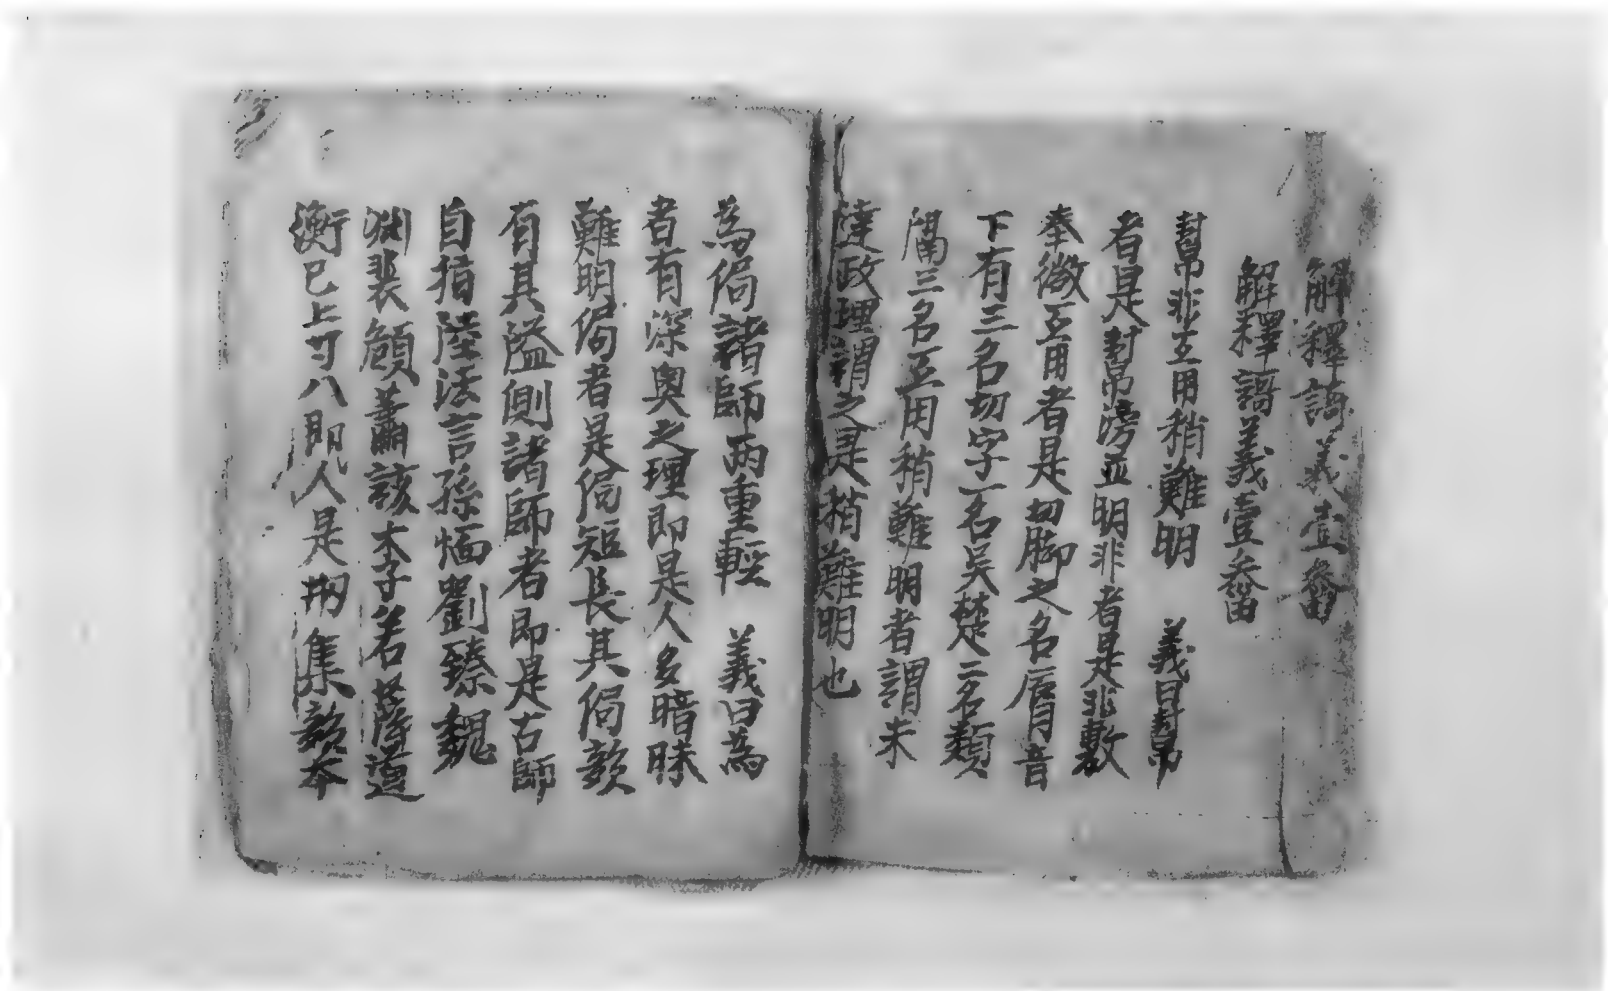 解釋謌義壹畨
解釋謌義壹畨
幫非互用稍難明　義曰幫
者是幫滂並明非者是非敷
奉微互用者是切腳之名脣音
下有三名切字一名吳楚二名類
隔三名互用稍難明者謂未
達政理謂之是稍難明也
為侷諸師兩重輕　義曰為
者有深奧之理即是人多暗昧
難明侷者是侷短長其侷韻
有其隘側諸師者即是古師
自指陸法言孫愐劉臻魏
淵裴顏蕭該李若薛道
衡已上八人是